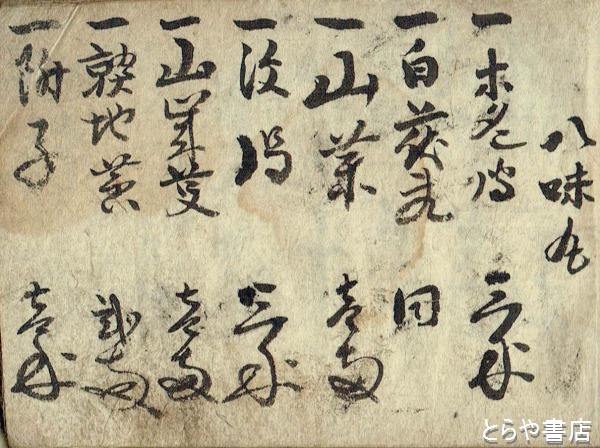 八味丸
一 牡丹皮 三匁
一 白茯苓 同
一 山薬 壱両
一 沢瀉 三匁
一 山茱萸 壱両
一 熟地黄 弐両
一 附子 壱匁
とらや書店